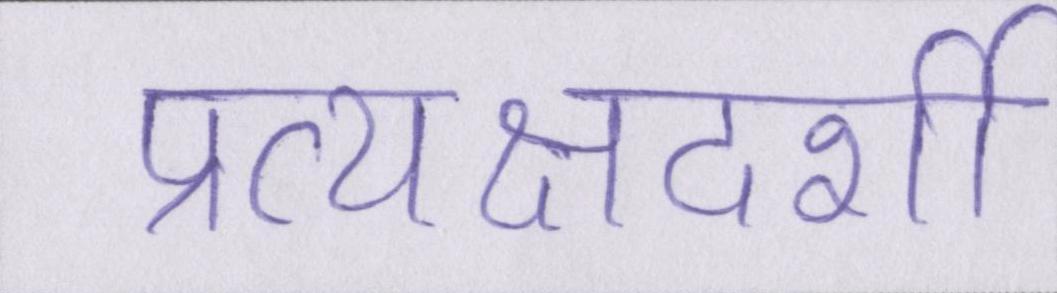 प्रत्यक्षदर्शी